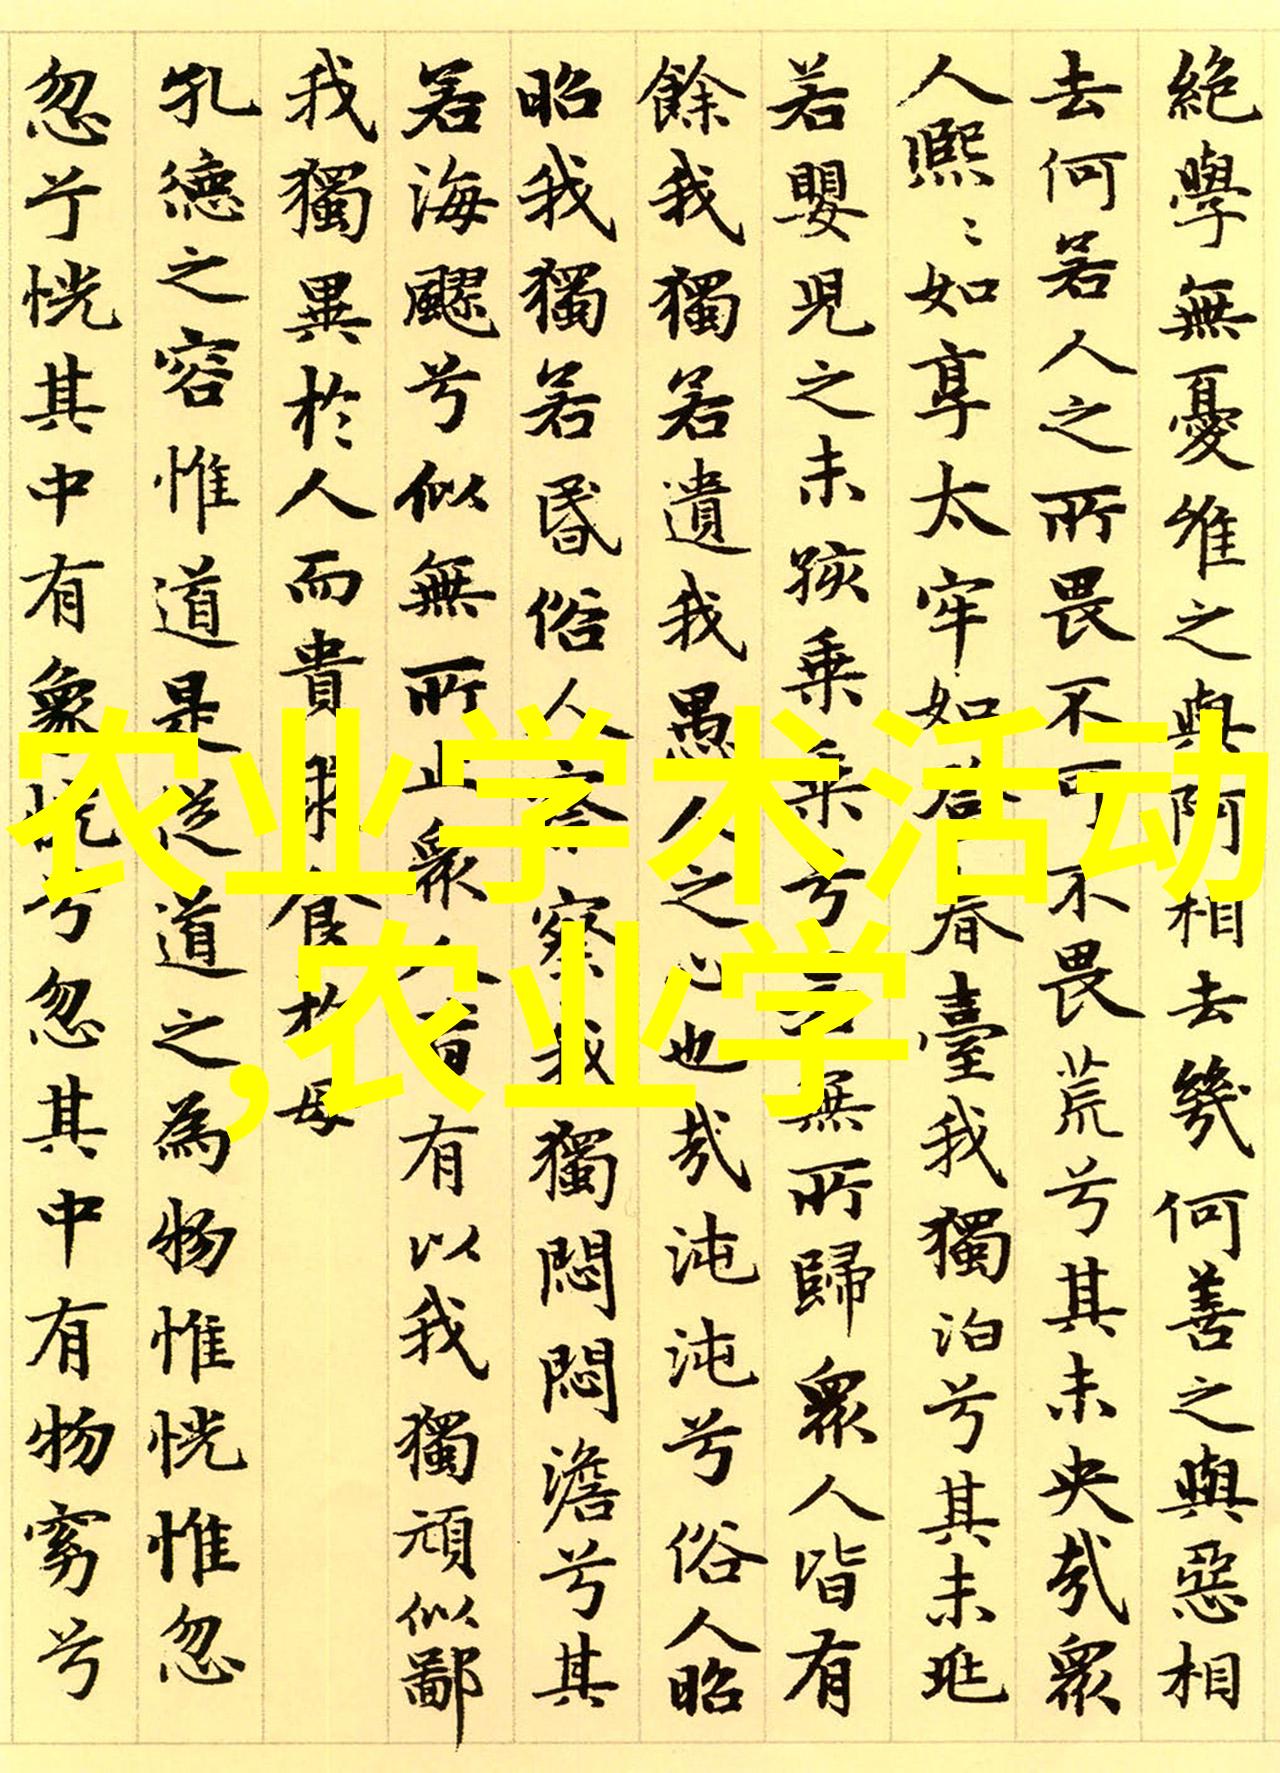 絶學無憂唯之與阿相去幾何善之與惡相
去何若人之所畏不可不畏荒兮其未央哉衆
人熙〻如享太牢如登春臺我獨泊兮其未兆
若嬰兒之未孩乘乘兮若無所歸衆人皆有
餘我獨若遺我愚人之心也哉沌沌兮俗人昭
昭我獨若昏俗人察察我獨悶悶澹兮其
若海飂兮似無所止衆人皆有以我獨頑似鄙
我獨異於人而貴求食於母
孔德之容惟道是從道之為物惟恍惟忽
忽兮恍其中有象恍兮忽其中有物窈兮
农业学术活动
,农业学